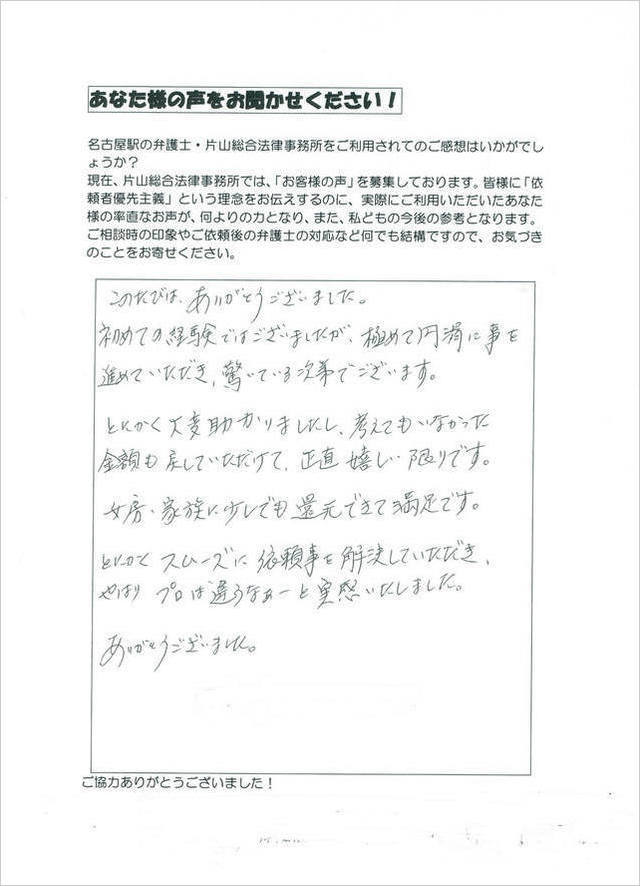 あなた様の声をお聞かせください！
名古屋駅の弁護士・片山総合法律事務所をご利用されてのご感想はいかがでし
ょうか？
現在、片山総合法律事務所では、「お客様の声」を募集しております。皆様に「依
頼者優先主義」という理念をお伝えするのに、実際にご利用いただいたあなた
様の率直なお声が、何よりの力となり、また、私どもの今後の参考となります。
ご相談時の印象やご依頼後の弁護士の対応など何でも結構ですので、お気づき
のことをお寄せください。
このたびは、ありがとうございました。
初めての経験ではございましたが、極めて円滑に事を
進めていただき、驚いている次第でございます。
とにかく大変助かりましたし、考えてもいなかった
金額も戻していただけて、正直嬉しい限りです。
女房・家族に少しでも還元できて満足です。
とにかくスムーズに依頼事を解決していただき、
やはりプロは違うなぁーと実感いたしました。
ありがとうございました。
ご協力ありがとうございました！